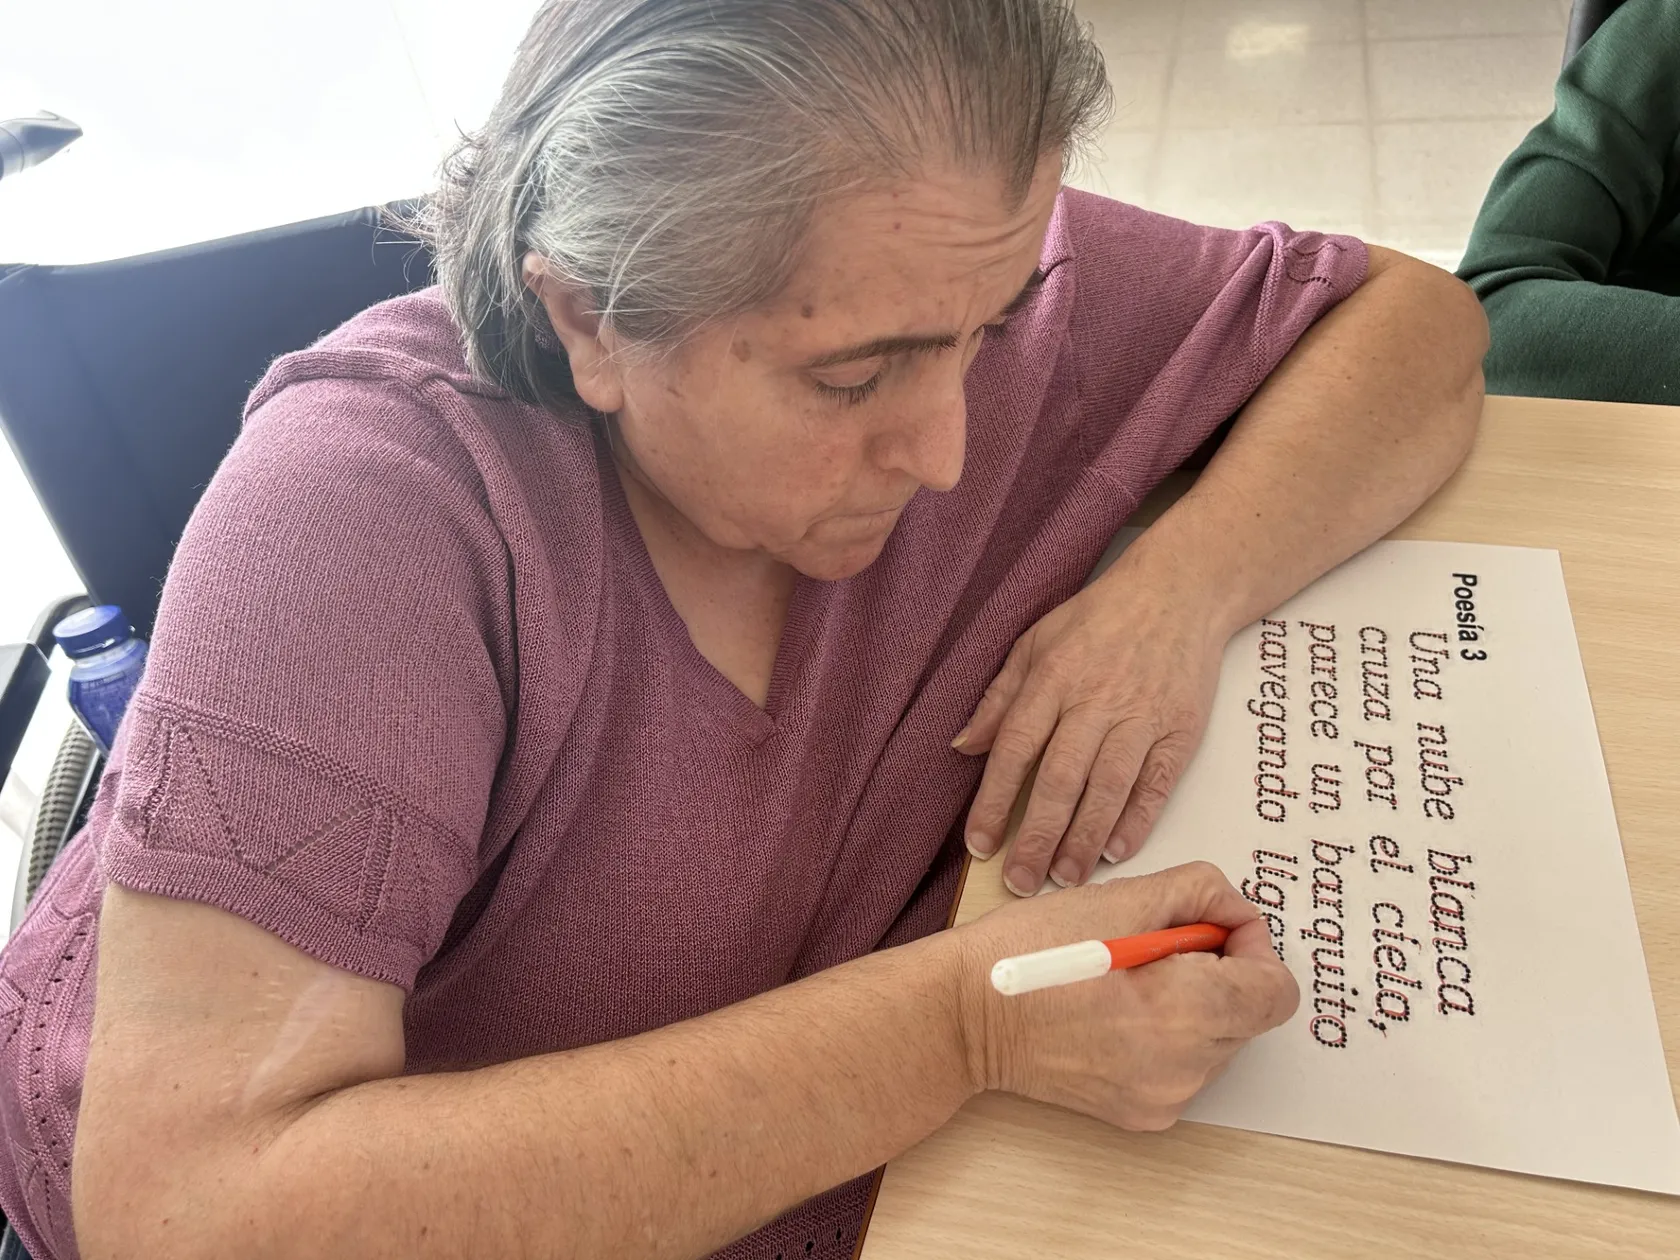 Poesía 3
Una nube blanca
cruza por el cielo,
parece un barquito
navegando